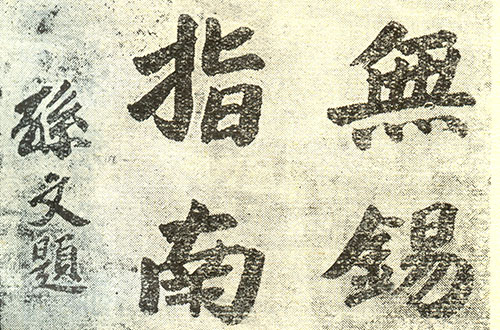 無錫
指南
孫文題